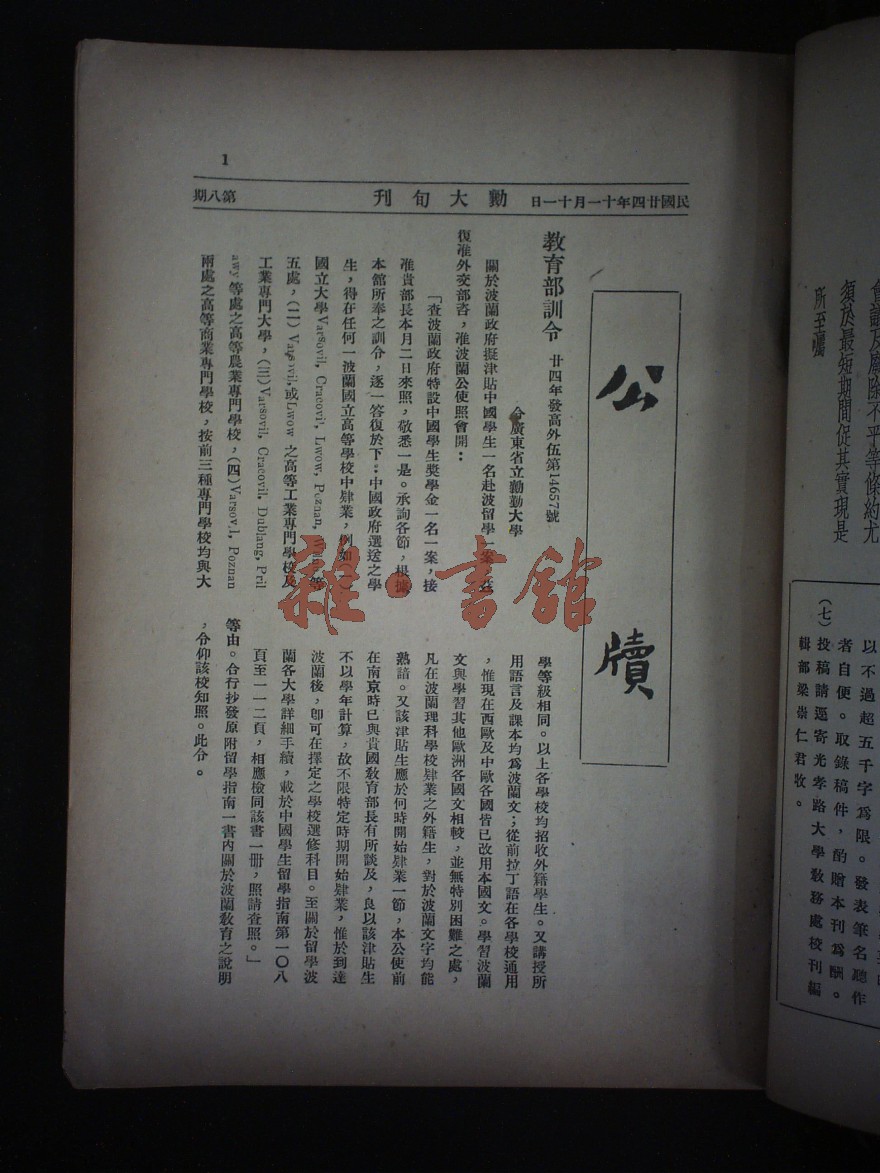 1
民國廿四年十一月十一日
勷大旬刊
第八期
公牘
教育部訓令 廿四年發高外伍第14657號
令廣東省立勷勤大學
關於波蘭政府擬津貼中國學生一名赴波留學一案
復准外交部咨,准波蘭公使照會開:
「查波蘭政府特設中國學生獎學金一名一案,接
准貴部長本月二日來照,敬悉一是。承詢各節,根據
本館所奉之訓令,逐一答復於下:中國政府選送之學
生,得在任何一波蘭國立高等學校中肄業,例如
國立大學Varsovil, Cracovil, Lwow, Poznan, 等
五處,(二)Varsovil,或Lwow 之高等工業專門學校及
工業專門大學,(三)Varsovil, Cracovil, Dublang, Pril
awy 等處之高等農業專門學校,(四)Varsovil, Poznan
兩處之高等商業專門學校,按前三種專門學校均與大
學等級相同。以上各學校均招收外籍學生。又講授所
用語言及課本均爲波蘭文;從前拉丁語在各學校通用
,惟現在西歐及中歐各國皆已改用本國文。學習波蘭
文與學習其他歐洲各國文相較,並無特別困難之處,
凡在波蘭理科學校肄業之外籍生,對於波蘭文字均能
熟諳。又該津貼生應於何時開始肄業一節,本公使前
在南京時已與貴國教育部長有所談及,良以該津貼生
不以學年計算,故不限特定時期開始肄業,惟於到達
波蘭後,卽可在擇定之學校選修科目。至關於留學波
蘭各大學詳細手續,載於中國學生留學指南第一〇八
頁至一一二頁,相應檢同該書一冊,照請查照。」
等由。合行抄發原附留學指南一書內關於波蘭敎育之說明
,令仰該校知照。此令。
須於最短期間促其實現是
所至囑
以不過超五千字爲限。發表筆名聽作
者自便。取錄稿件,酌贈本刊爲酬。
(七)投稿請逕寄光孝路大學敎務處校刊編
輯部梁崇仁君收。
雜·書館